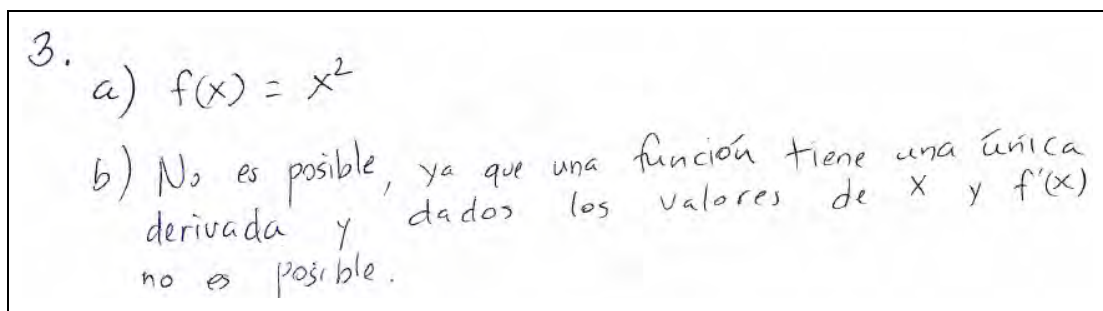 3.
a) f(x) = x²
b) No es posible, ya que una función tiene una única
derivada y dados los valores de x y f'(x)
no es posible.